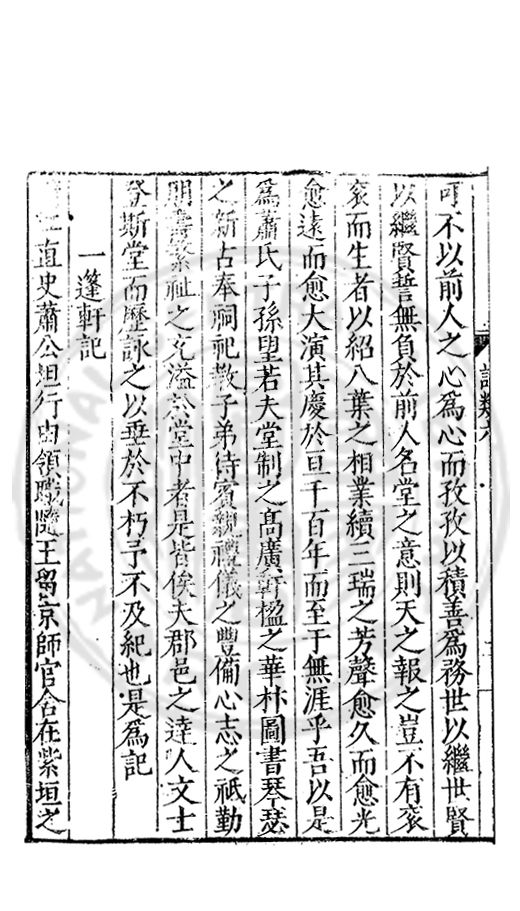 記類六
可不以前人之心為心而孜孜以積善為務世以繼世賢
以繼賢誓無負於前人名堂之意則天之報之豈不有衮
衮而生者以紹八葉之相業續三瑞之芳聲愈久而愈光
愈遠而愈大演其慶於亘千百年而至于無涯乎吾以是
為蕭氏子孫望若夫堂制之高廣軒楹之華林圖書琴瑟
之新古奉祠祀教子弟待賓親禮儀之豐備心志之祗勤
明譱繁祉之充溢於堂中者是皆俟夫郡邑之達人文士
登斯堂而歷詠之以垂於不朽予不及紀也是為記
一蓬軒記
直史蕭公行由領職隨王留京師官舍在紫垣之
NATIONAL